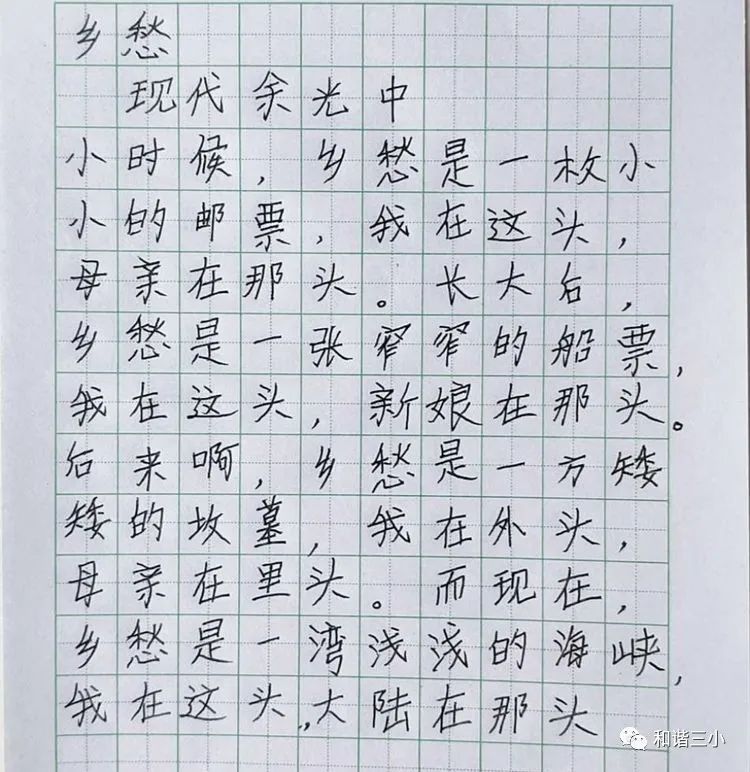 乡愁
现代余光中
小时候，乡愁是一枚小
小的邮票，我在这头，
母亲在那头。长大后，
乡愁是一张窄窄的船票，
我在这头，新娘在那头。
后来啊，乡愁是一方矮
矮的坟墓，我在外头，
母亲在里头。而现在，
乡愁是一湾浅浅的海峡，
我在这头，大陆在那头
和谐三小